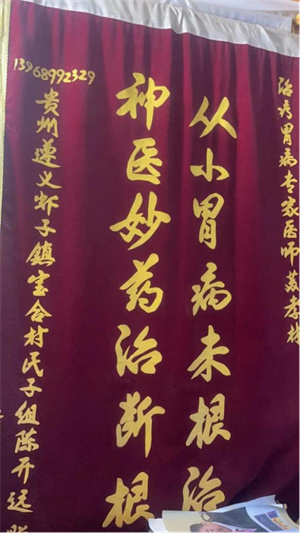 治疗胃病专家医师
从小胃病未根治
神医妙药治断根
13968992329
贵州遵义虾子镇宝合村民子组陈开远